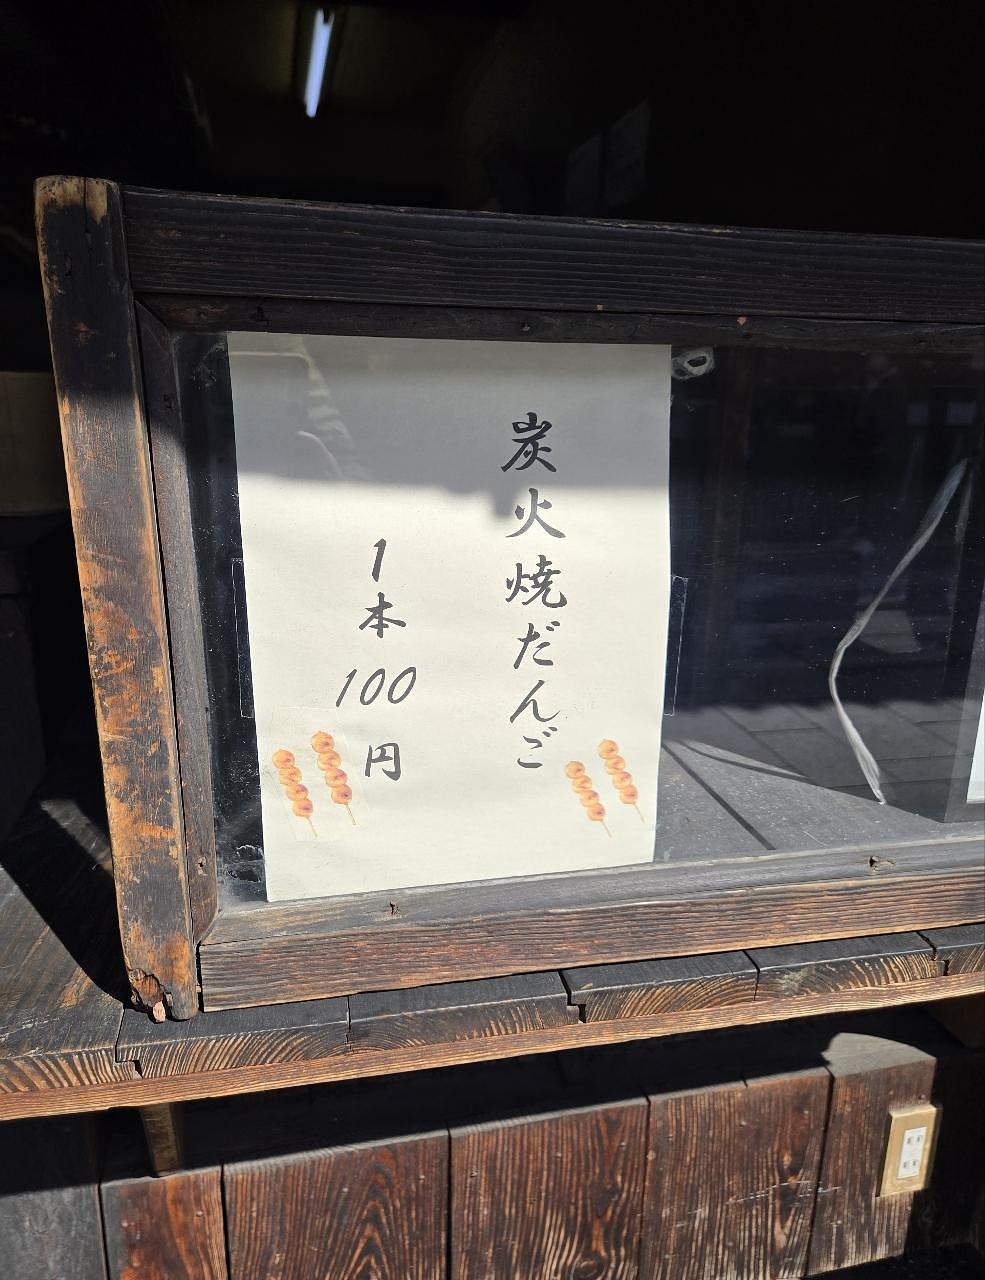 炭火焼だんご
1本100円